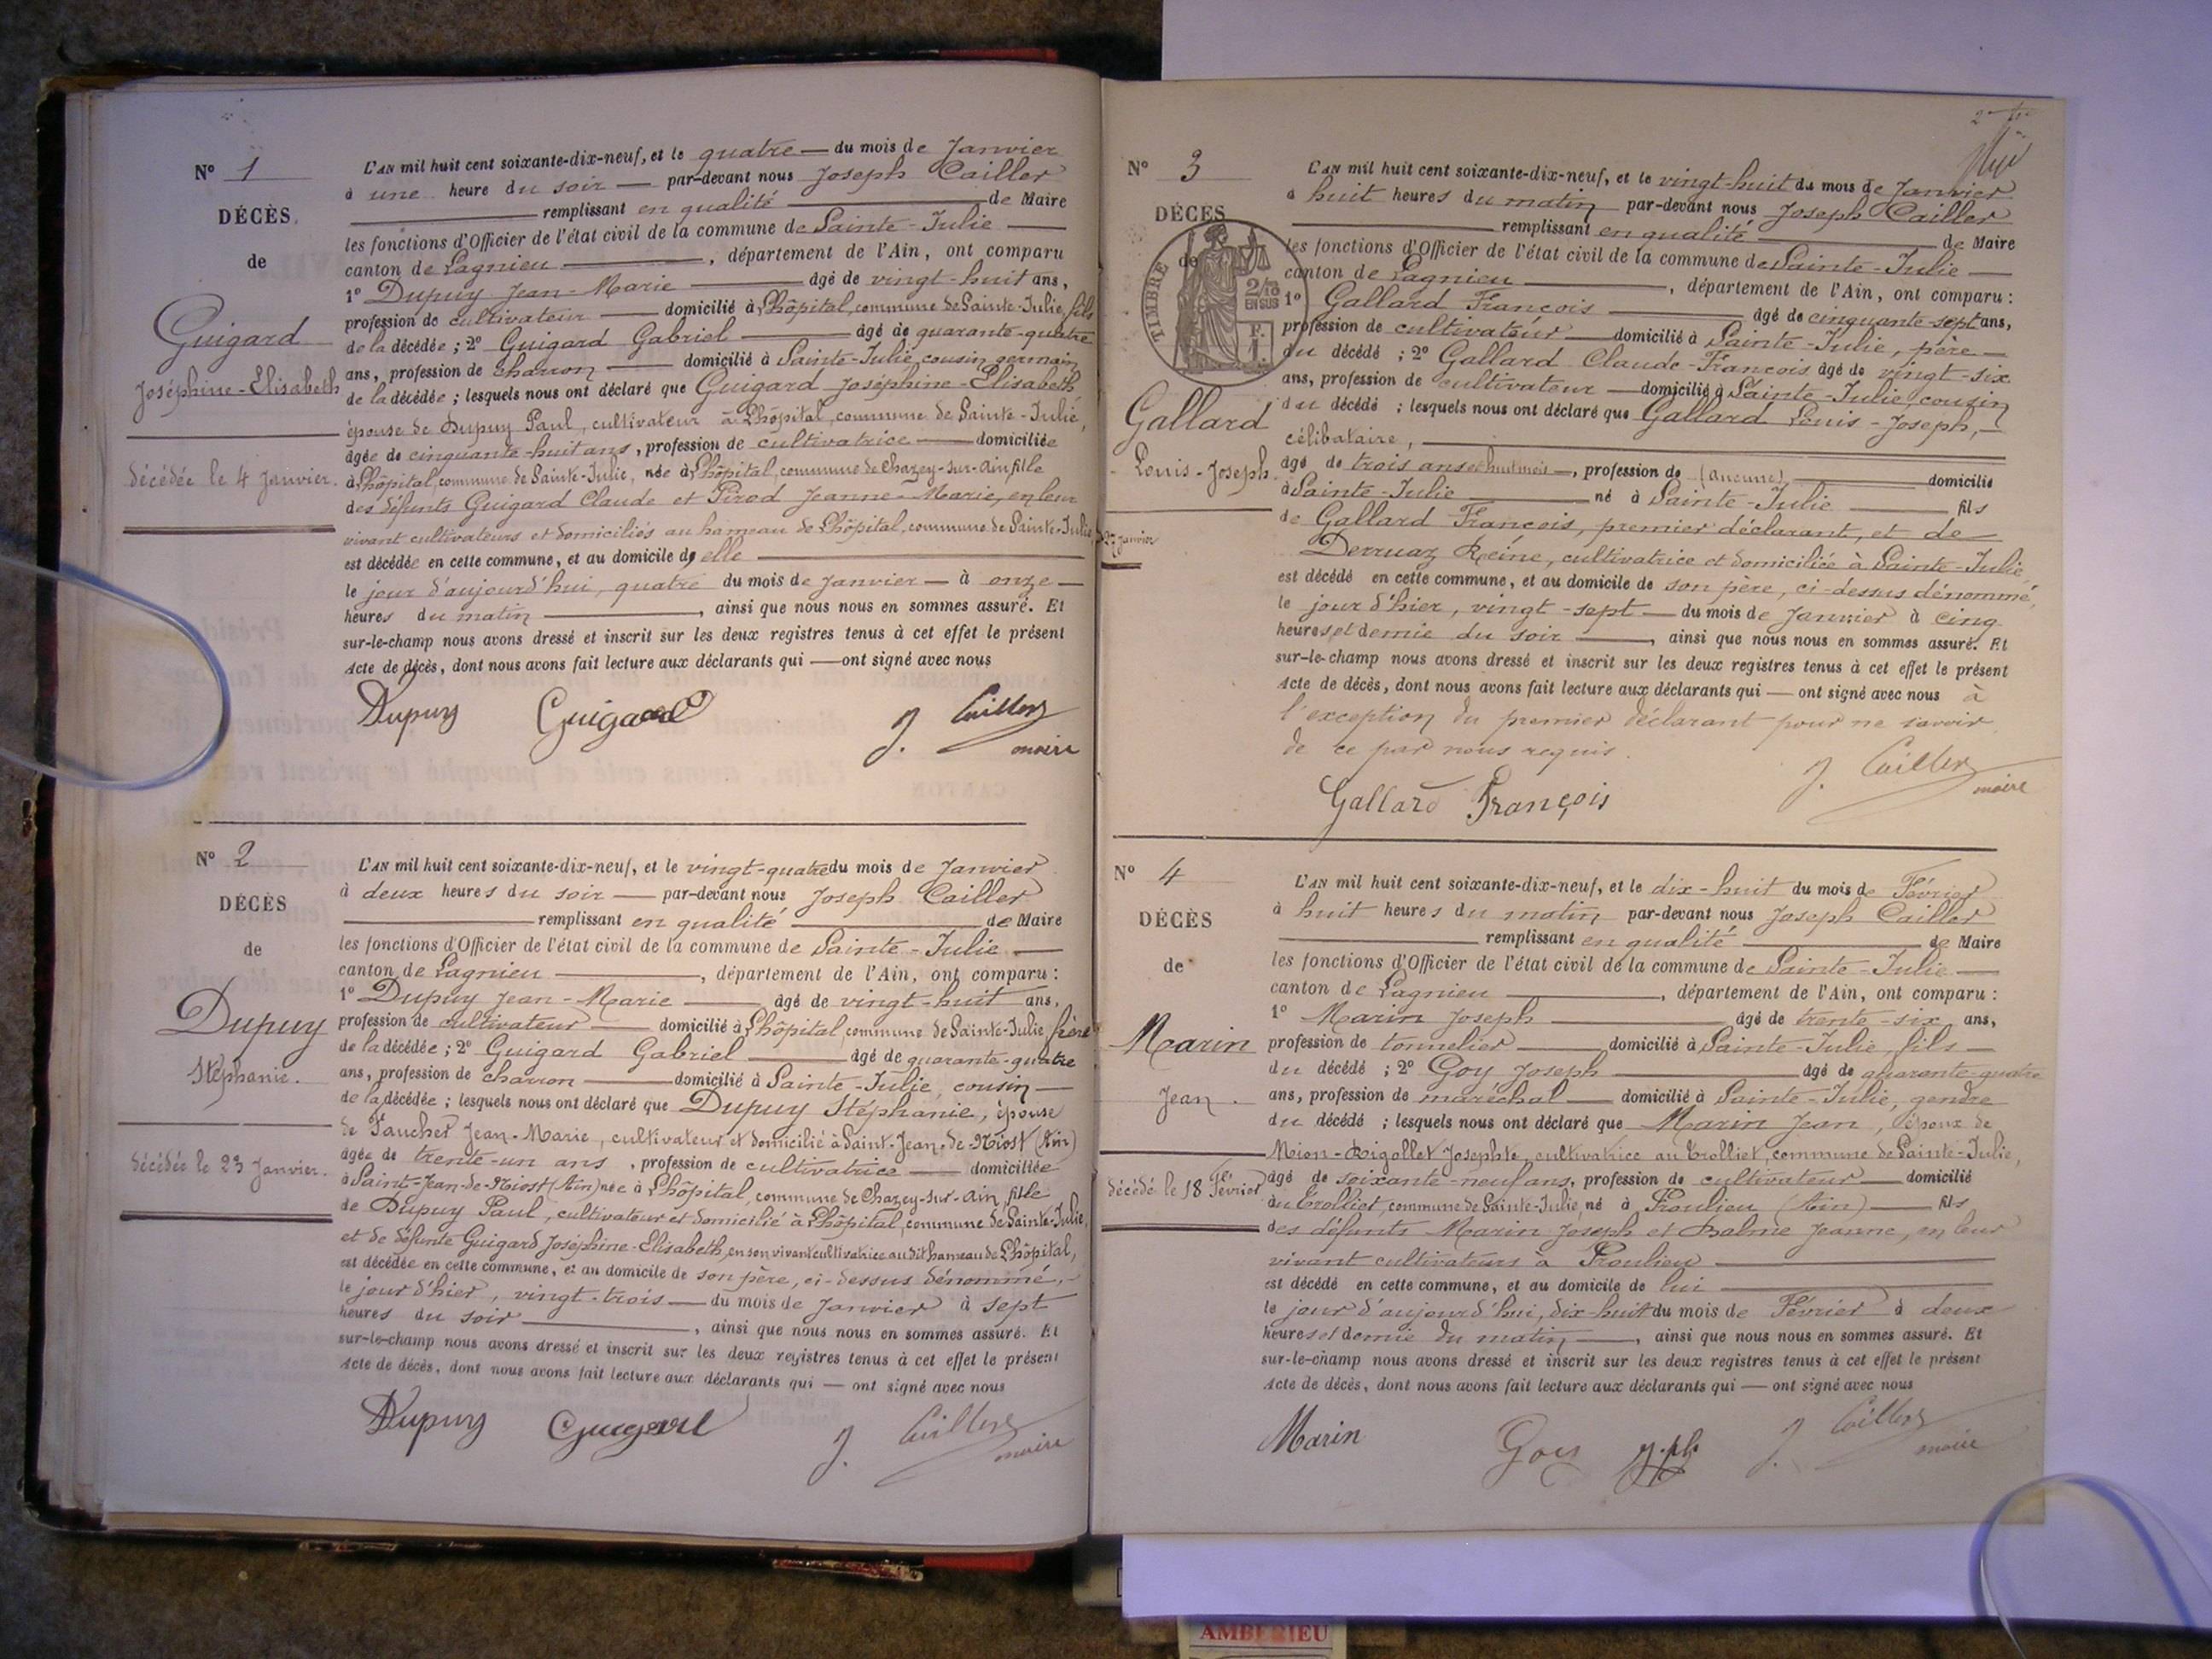 N° 1
DÉCÈS
de
Guigard
Joséphine-Elisabeth
décédée le 4 Janvier.
L'AN mil huit cent soixante-dix-neuf, et le quatre — du mois de Janvier
à une heure du soir — par-devant nous Joseph Cailler
remplissant en qualité — de Maire
les fonctions d'Officier de l'état civil de la commune de Sainte-Julie —
canton de Lagnieu —, département de l'Ain, ont comparu
1° Dupuy Jean-Marie — âgé de vingt-huit ans,
profession de cultivateur — domicilié à Lhôpital, commune de Sainte-Julie, fils
de la décédée ; 2° Guigard Gabriel — âgé de quarante-quatre
ans, profession de charron — domicilié à Sainte-Julie, cousin germain
de la décédée ; lesquels nous ont déclaré que Guigard Joséphine-Elisabeth
épouse de Dupuy Paul, cultivateur à Lhôpital, commune de Sainte-Julie,
âgée de cinquante-huit ans, profession de cultivatrice — domiciliée
à Lhôpital, commune de Sainte-Julie, née à Lhôpital, commune de Chazey-sur-Ain fille
des défunts Guigard Claude et Pirod Jeanne-Marie, en leur
vivant cultivateurs et domiciliés au hameau de Lhôpital, commune de Sainte-Julie,
est décédée en cette commune, et au domicile de elle —
le jour d'aujourd'hui, quatre du mois de Janvier — à onze —
heures du matin —, ainsi que nous nous en sommes assuré. Et
sur-le-champ nous avons dressé et inscrit sur les deux registres tenus à cet effet le présent
Acte de décès, dont nous avons fait lecture aux déclarants qui — ont signé avec nous
Dupuy Guigard J. Cailler
maire
N° 2
DÉCÈS
de
Dupuy
Stéphanie.
décédée le 23 Janvier.
L'AN mil huit cent soixante-dix-neuf, et le vingt-quatre du mois de Janvier
à deux heures du soir — par-devant nous Joseph Cailler
remplissant en qualité — de Maire
les fonctions d'Officier de l'état civil de la commune de Sainte-Julie —
canton de Lagnieu —, département de l'Ain, ont comparu :
1° Dupuy Jean-Marie — âgé de vingt-huit ans,
profession de cultivateur — domicilié à Lhôpital, commune de Sainte-Julie, frère
de la décédée ; 2° Guigard Gabriel — âgé de quarante-quatre
ans, profession de charron — domicilié à Sainte-Julie, cousin —
de la décédée ; lesquels nous ont déclaré que Dupuy Stéphanie, épouse
de Faucher Jean-Marie, cultivateur et domicilié à Saint-Jean-de-Niost (Ain)
âgée de trente-un ans, profession de cultivatrice — domiciliée
à Saint-Jean-de-Niost (Ain) née à Lhôpital, commune de Chazey-sur-Ain, fille
de Dupuy Paul, cultivateur et domicilié à Lhôpital, commune de Sainte-Julie,
et de défunte Guigard Joséphine-Elisabeth, en son vivant cultivatrice au dit hameau de Lhôpital,
est décédée en cette commune, et au domicile de son père, ci-dessus dénommé,
le jour d'hier, vingt-trois — du mois de Janvier à sept
heures du soir —, ainsi que nous nous en sommes assuré. Et
sur-le-champ nous avons dressé et inscrit sur les deux registres tenus à cet effet le présent
Acte de décès, dont nous avons fait lecture aux déclarants qui — ont signé avec nous
Dupuy Guigard J. Cailler
maire
N° 3
DÉCÈS
de
TIMBRE
2/10
EN SUS
F.
1.
Gallard
Louis-Joseph
27 Janvier
L'AN mil huit cent soixante-dix-neuf, et le vingt-huit du mois de Janvier
à huit heures du matin par-devant nous Joseph Cailler
remplissant en qualité — de Maire
les fonctions d'Officier de l'état civil de la commune de Sainte-Julie —
canton de Lagnieu —, département de l'Ain, ont comparu :
1° Gallard François — âgé de cinquante-sept ans,
profession de cultivateur — domicilié à Sainte-Julie, père —
du décédé ; 2° Gallard Claude-François âgé de vingt-six
ans, profession de cultivateur — domicilié à Sainte-Julie, cousin
du décédé ; lesquels nous ont déclaré que Gallard Louis-Joseph,
célibataire, —
âgé de trois ans et huit mois —, profession de (aucune) — domicilié
à Sainte-Julie — né à Sainte-Julie — fils
de Gallard François, premier déclarant, et de
Derruaz Reine, cultivatrice et domiciliée à Sainte-Julie
est décédé en cette commune, et au domicile de son père, ci-dessus dénommé,
le jour d'hier, vingt-sept — du mois de Janvier à cinq
heures et demie du soir —, ainsi que nous nous en sommes assuré. Et
sur-le-champ nous avons dressé et inscrit sur les deux registres tenus à cet effet le présent
Acte de décès, dont nous avons fait lecture aux déclarants qui — ont signé avec nous à
l'exception du premier déclarant pour ne savoir
de ce par nous requis.
Gallard François J. Cailler
maire
N° 4
DÉCÈS
de
Marin
Jean.
décédé le 18 Février
L'AN mil huit cent soixante-dix-neuf, et le dix-huit du mois de Février
à huit heures du matin par-devant nous Joseph Cailler
remplissant en qualité — de Maire
les fonctions d'Officier de l'état civil de la commune de Sainte-Julie —
canton de Lagnieu —, département de l'Ain, ont comparu :
1° Marin Joseph — âgé de trente-six ans,
profession de tonnelier — domicilié à Sainte-Julie, fils —
du décédé ; 2° Goy Joseph — âgé de quarante-quatre
ans, profession de maréchal — domicilié à Sainte-Julie, gendre
du décédé ; lesquels nous ont déclaré que Marin Jean, époux de
Moion-Rigollet Josephte, cultivatrice au Trolliet, commune de Sainte-Julie,
âgé de soixante-neuf ans, profession de cultivateur — domicilié
au Trolliet, commune de Sainte-Julie, né à Proulieu (Ain) — fils
des défunts Marin Joseph et Balme Jeanne, en leur
vivant cultivateurs à Proulieu —
est décédé en cette commune, et au domicile de lui —
le jour d'aujourd'hui, dix-huit du mois de Février à deux
heures et demie du matin —, ainsi que nous nous en sommes assuré. Et
sur-le-champ nous avons dressé et inscrit sur les deux registres tenus à cet effet le présent
Acte de décès, dont nous avons fait lecture aux déclarants qui — ont signé avec nous
Marin Goy Jph J. Cailler
maire
AMBERIEU